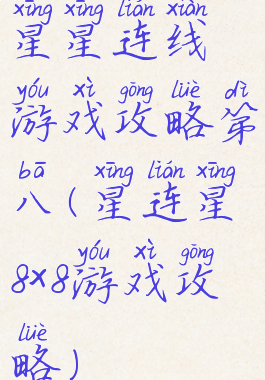 xīng xīng lián xiàn
星星连线
yóu xì gōng lüè dì
游戏攻略第
bā xīng lián xīng
八（星连星
yóu xì gōng
8×8游戏攻
lüè
略）